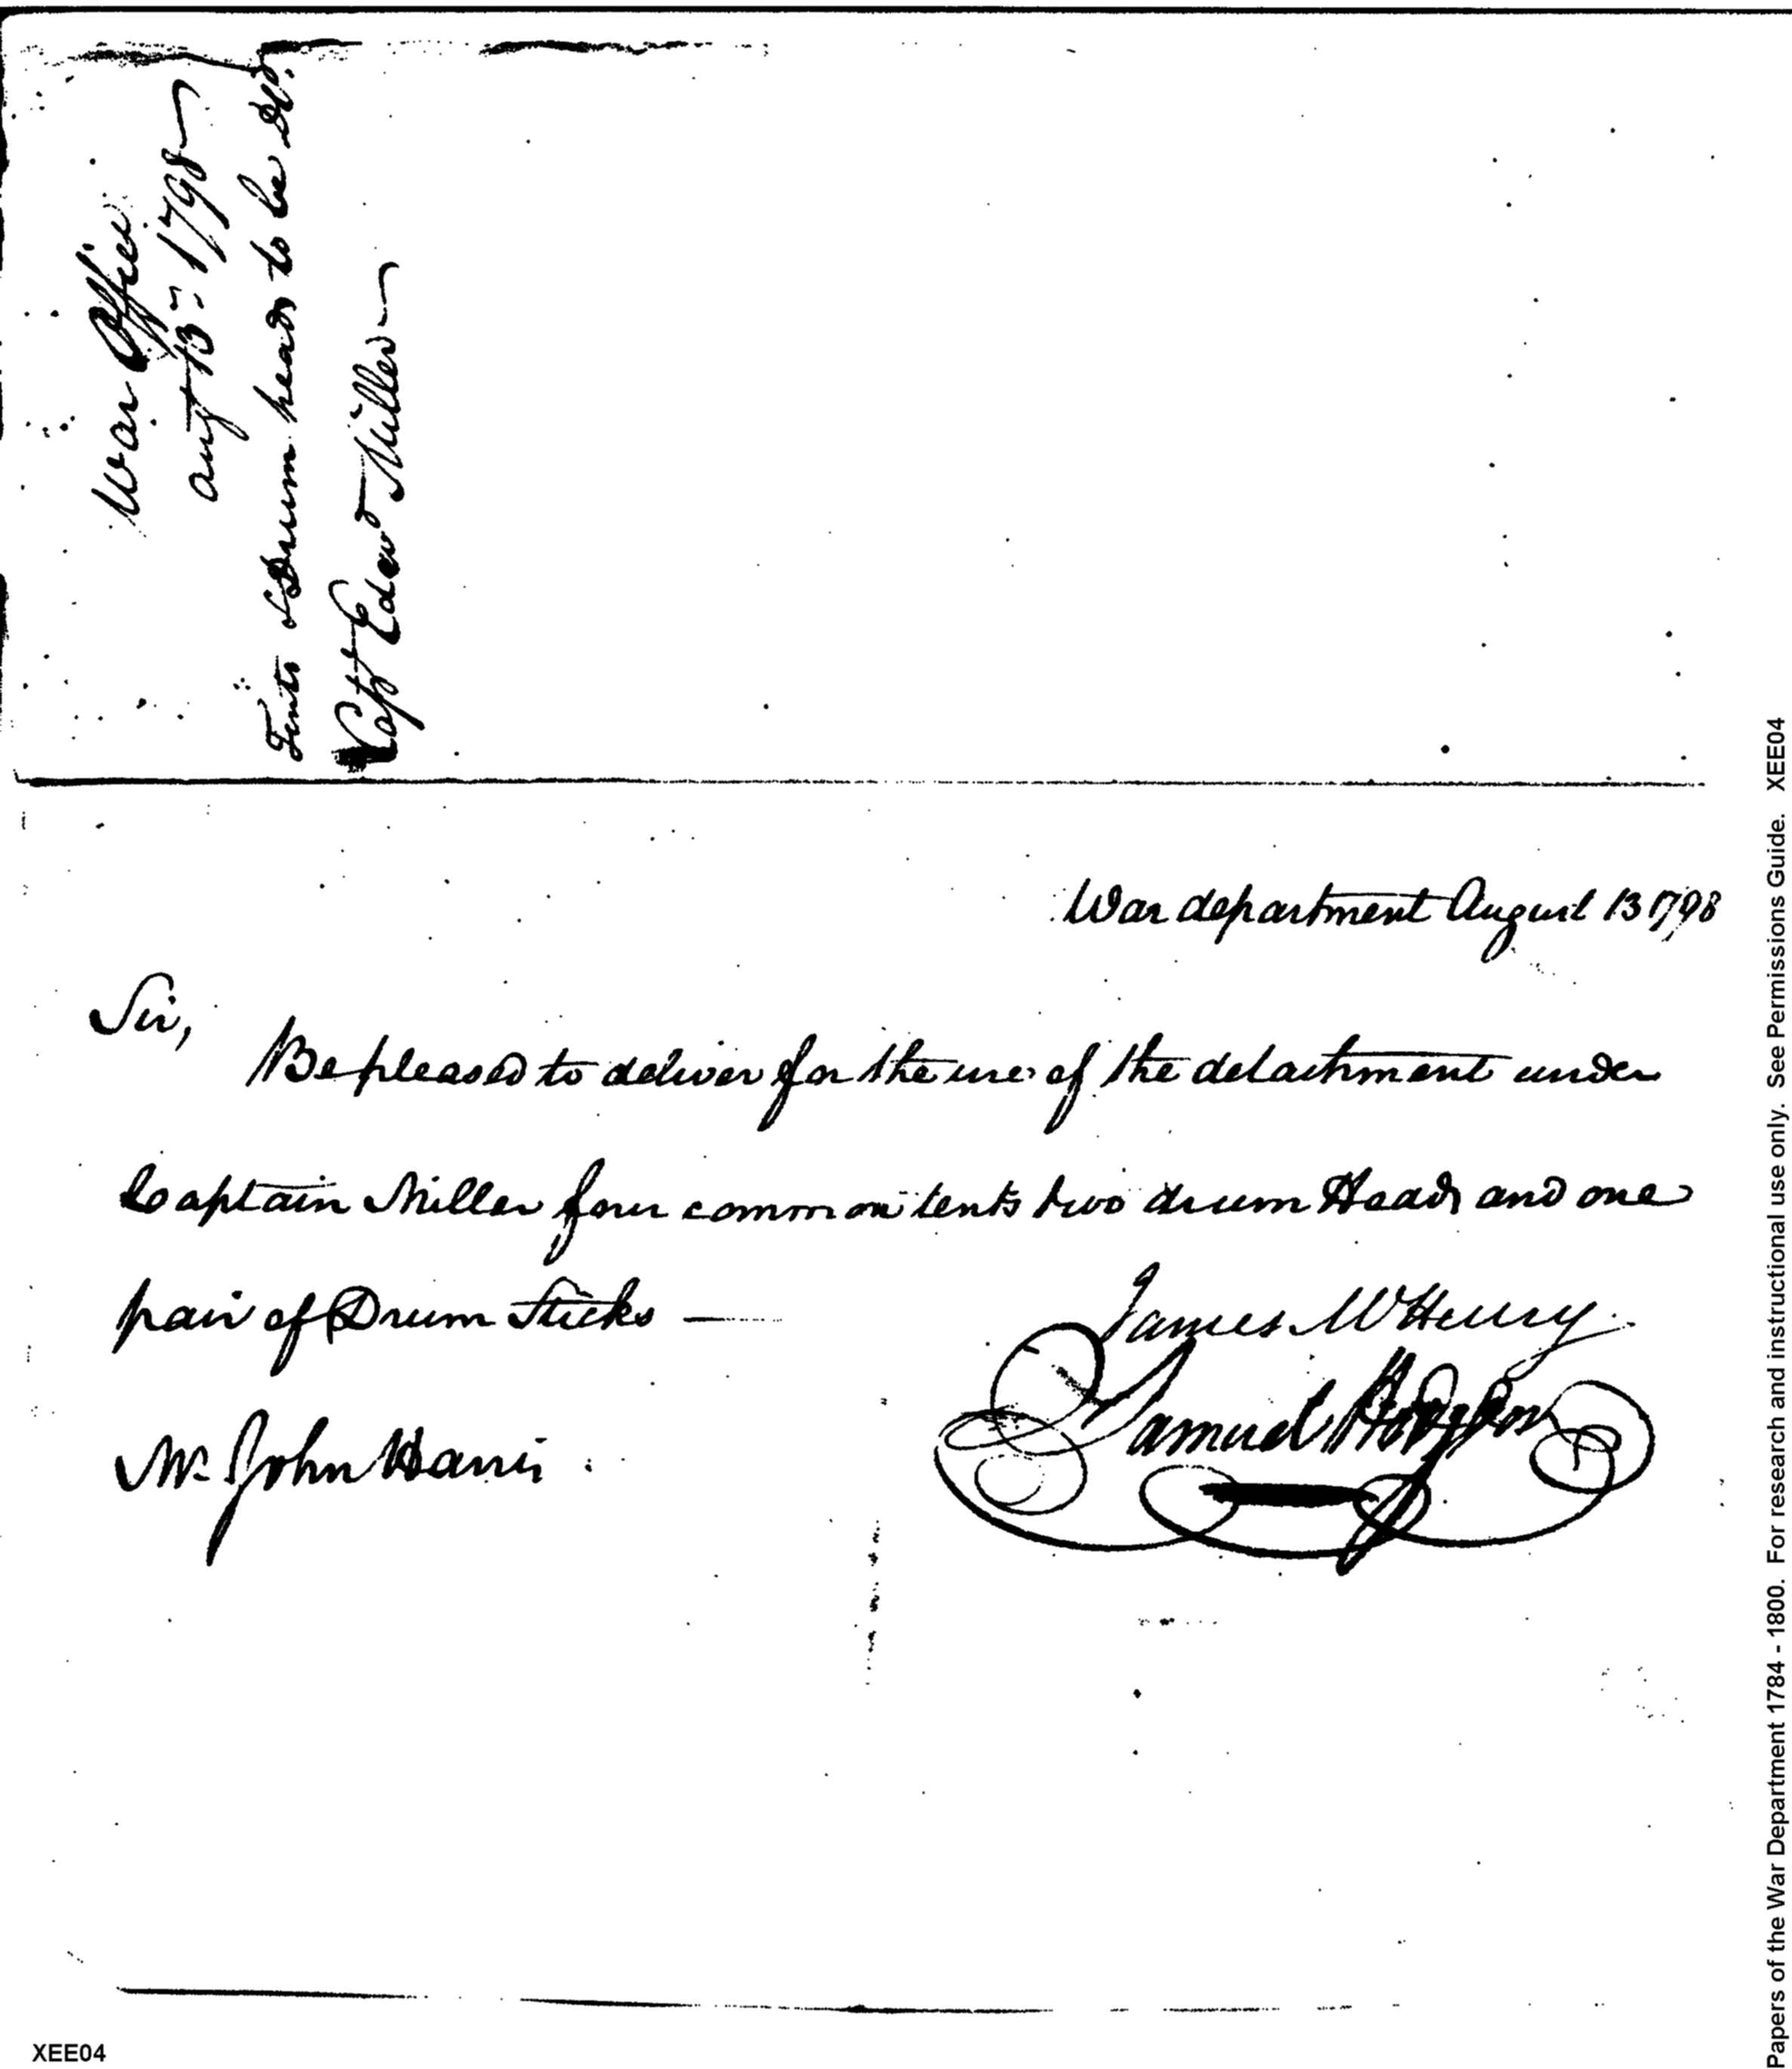 War Office
Aug 13 1798
Tents & Drum heads to be
Capt Edwd Miller
War department August 13 1798
Sir,
Be pleased to deliver for the use of the detachment under
Captain Miller four common tents two drum Heads and one
pair of Drum Sticks —
James McHenry
Samuel Hodgdon
Mr. John Harris
Papers of the War Department 1784 - 1800. For research and instructional use only. See Permissions Guide. XEE04
XEE04